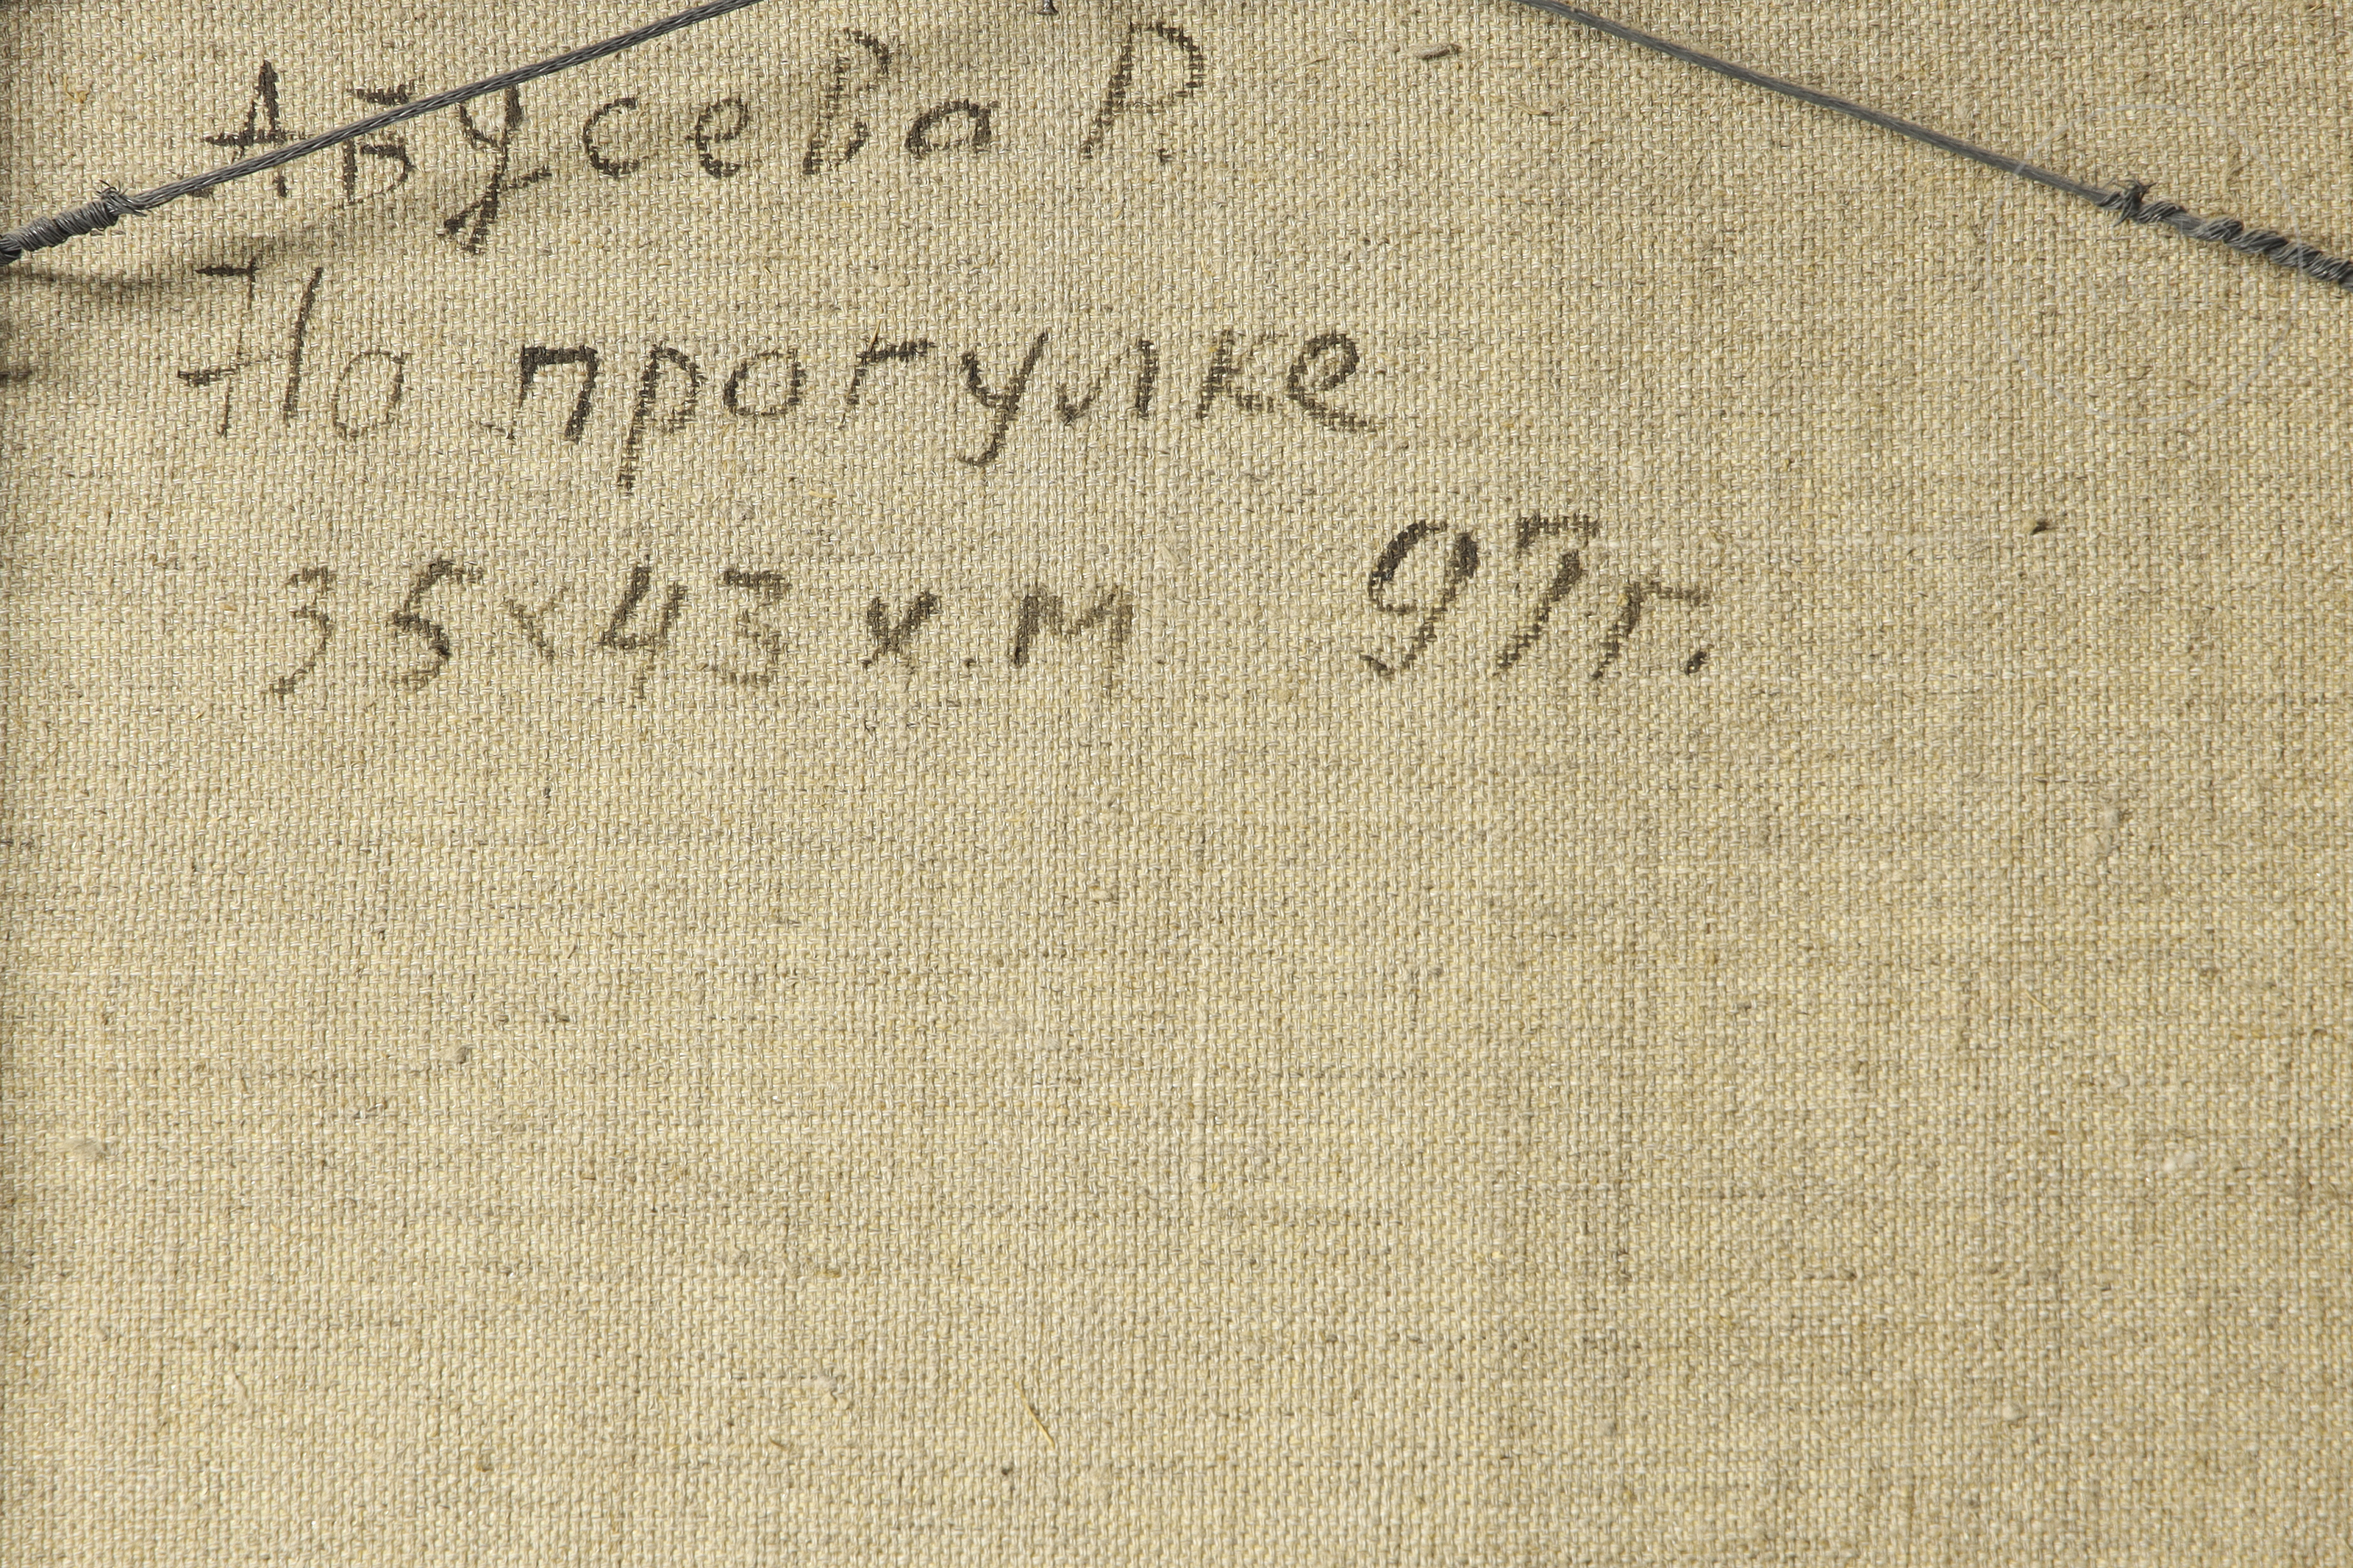 Абусева Р.
На прогулке
35х43 х.м 97г.